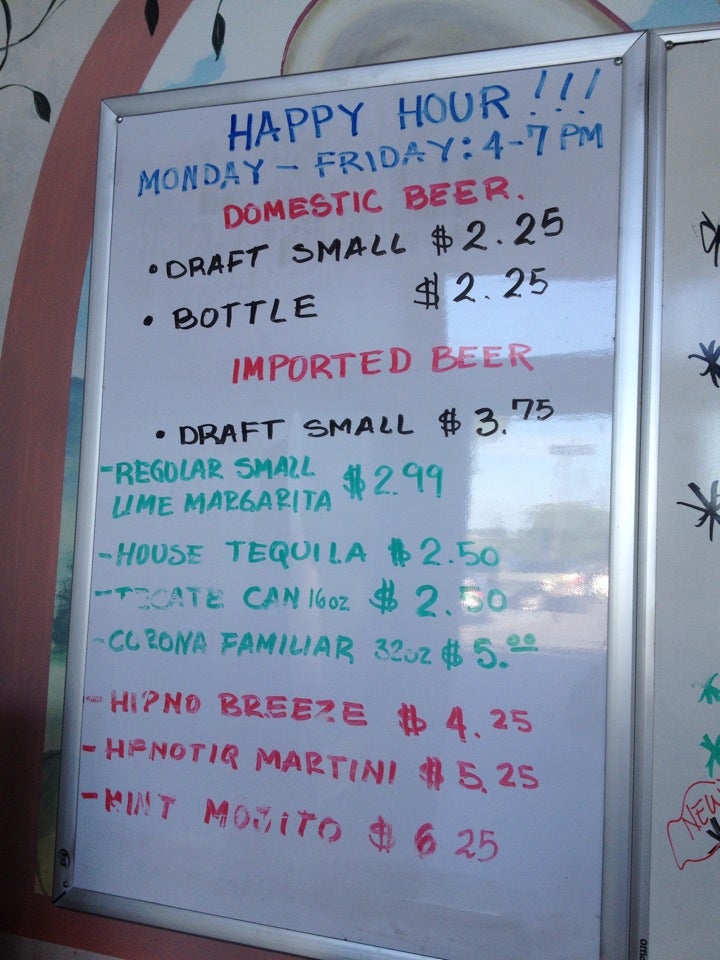 HAPPY HOUR!!!
MONDAY - FRIDAY: 4-7 PM
DOMESTIC BEER.
• DRAFT SMALL $2.25
• BOTTLE $2.25
IMPORTED BEER
• DRAFT SMALL $3.75
- REGULAR SMALL
LIME MARGARITA $2.99
- HOUSE TEQUILA $2.50
- TECATE CAN 16oz $2.50
- CORONA FAMILIAR 32oz $5.00
- HIPNO BREEZE $4.25
- HPNOTIQ MARTINI $5.25
- MINT MOJITO $6 25
NEW